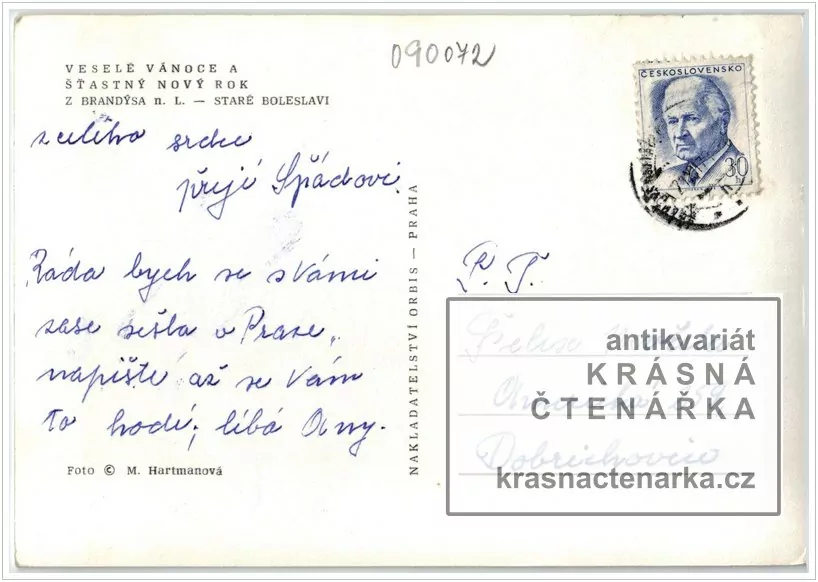 090072
VESELÉ VÁNOCE A
ŠŤASTNÝ NOVÝ ROK
Z BRANDÝSA n. L. — STARÉ BOLESLAVI
z celého srdce
přejí Spádovi.
Ráda bych se s Vámi
zase sešla v Praze,
napiště až se Vám
to hodí, líbá Any.
Foto © M. Hartmanová
NAKLADATELSTVÍ ORBIS — PRAHA
ČESKOSLOVENSKO
30
P. T.
Dobřichovice
antikvariát
KRÁSNÁ
ČTENÁŘKA
krasnactenarka.cz